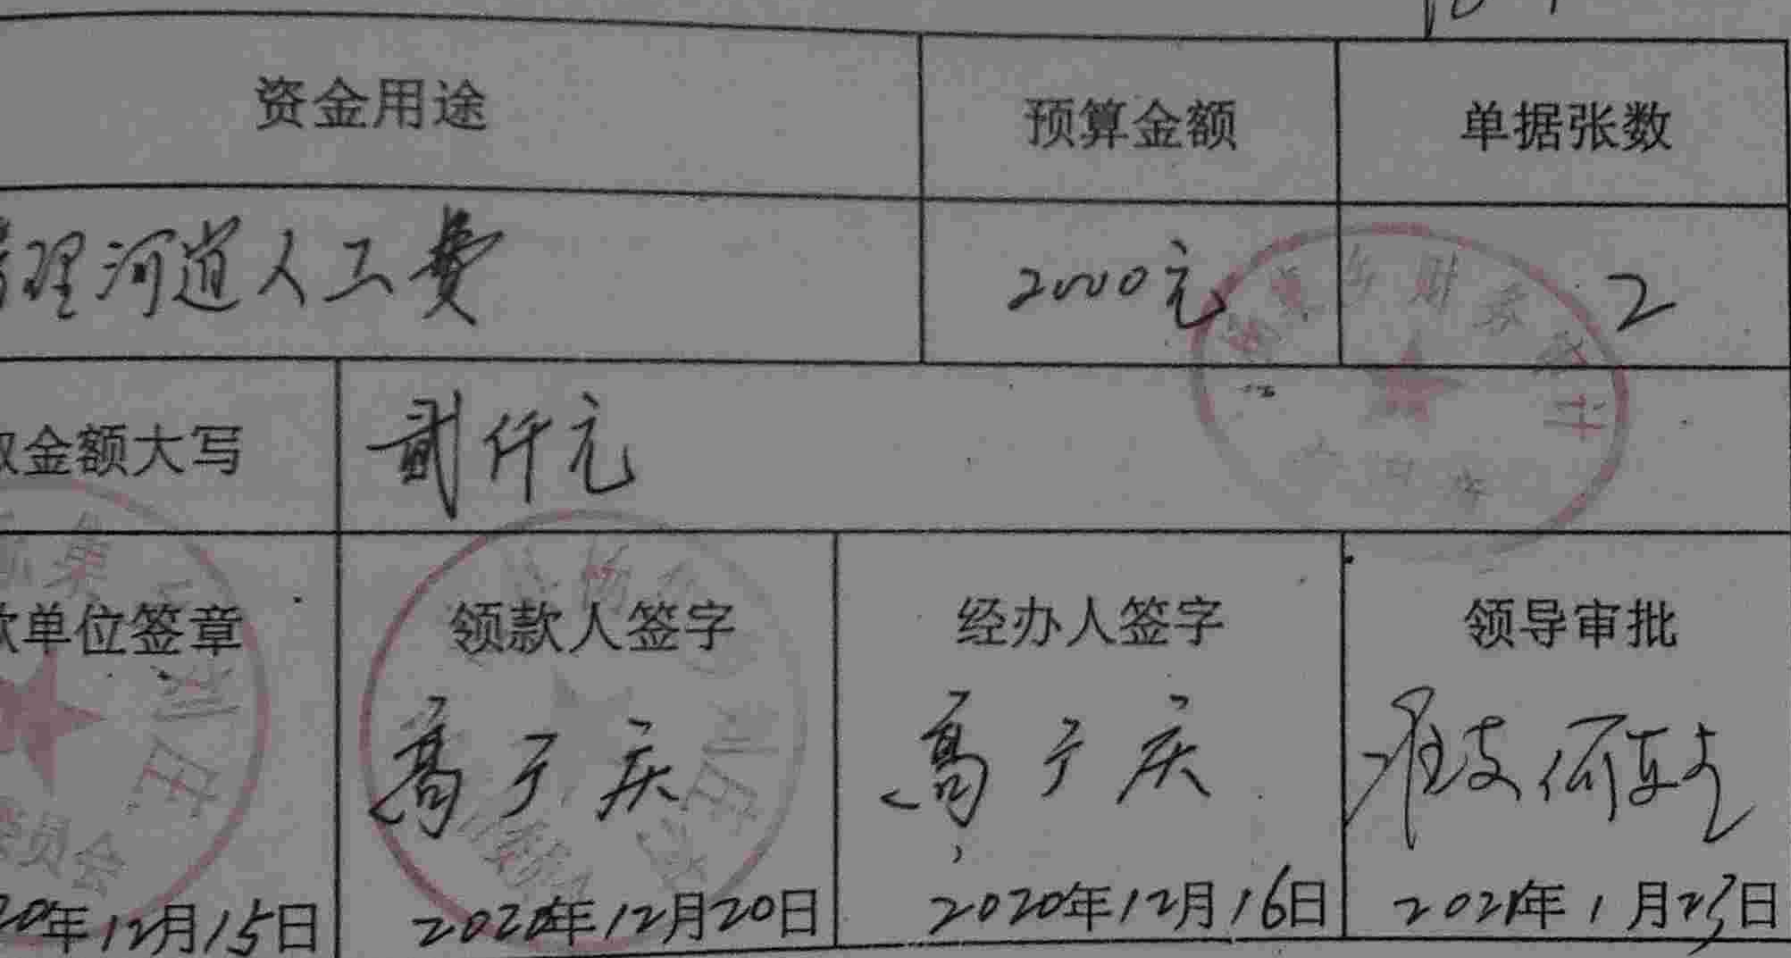 资金用途 预算金额 单据张数
清理河道人工费 2000元 2
金额大写 贰仟元
单位签章 领款人签字 经办人签字 领导审批
高于庆 高于庆 准支
20年12月15日 2020年12月20日 2020年12月16日 2021年1月23日